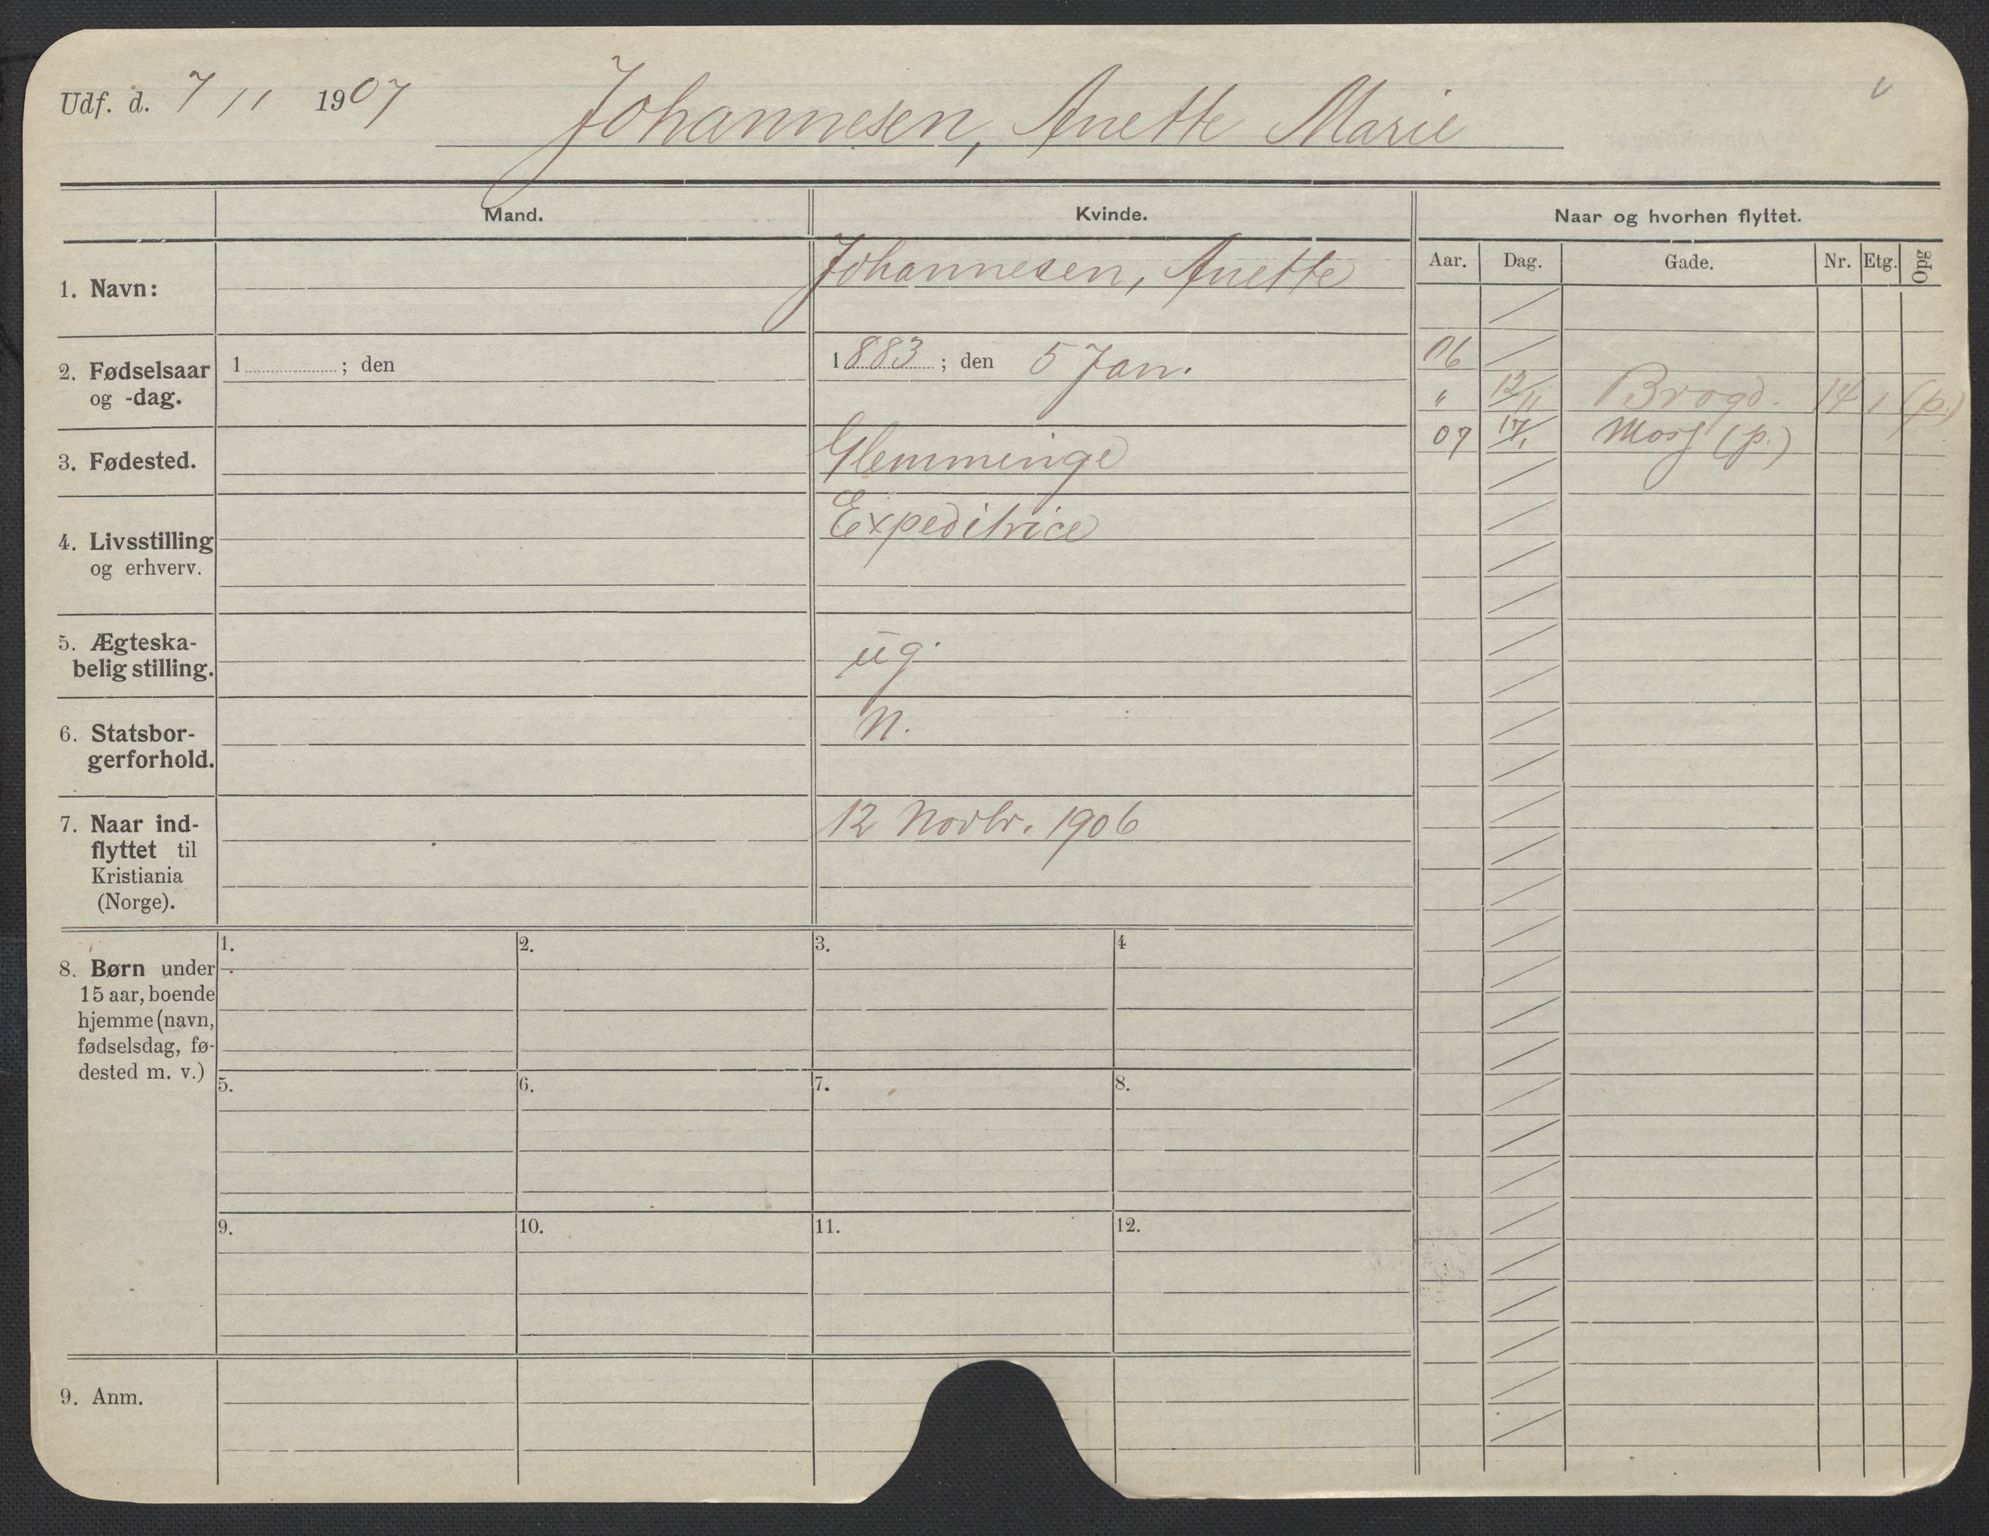 Udf. d. 7/11 1907 Johannesen, Anette Marie
Mand. Kvinde. Naar og hvorhen flyttet.
Aar. Dag. Gade. Nr. Etg. Opg
1. Navn: Johannesen, Anette
2. Fødselsaar og -dag.
1 ; den
1883 ; den 5 Jan.
3. Fødested. Glemminge
4. Livsstilling og erhverv. Expeditrice
5. Ægteska-
belig stilling. ug.
6. Statsbor-
gerforhold. N.
7. Naar ind-
flyttet til
Kristiania
(Norge).
12 Novbr. 1906
06
" 12/11 Brogd. 14 1 (p.)
07 17/1 Moss (p.)
8. Børn under
15 aar, boende
hjemme (navn,
fødselsdag, fø-
dested m. v.)
1. 2. 3. 4
5. 6. 7. 8.
9. 10. 11. 12.
9. Anm.